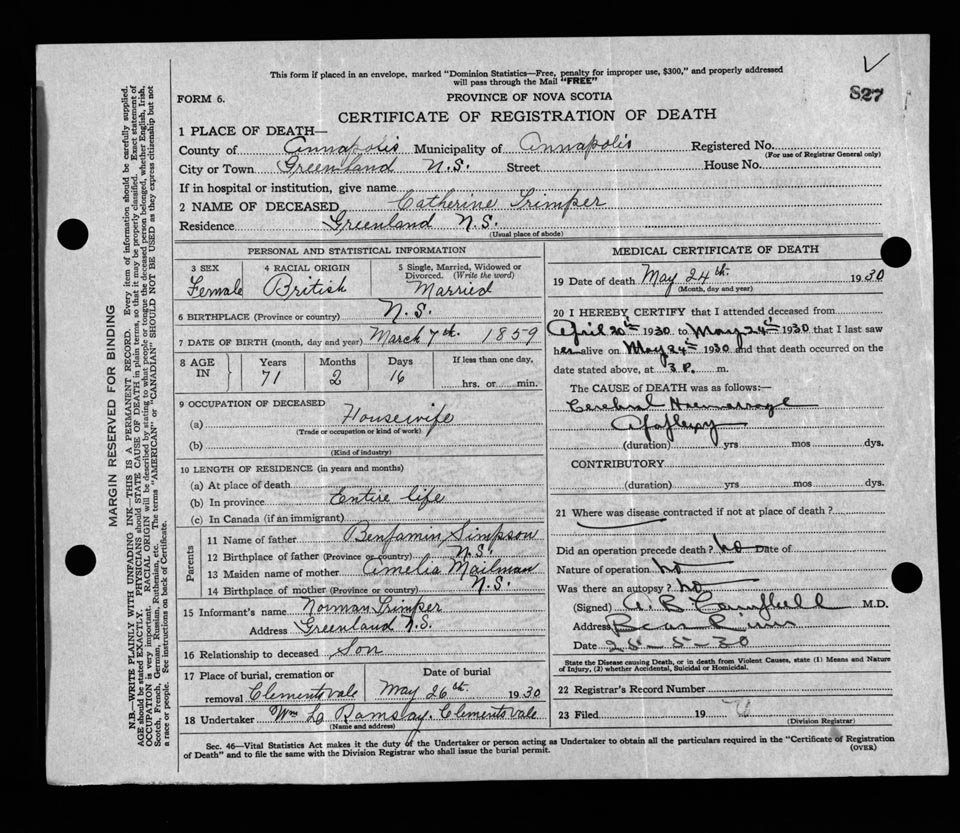 This form if placed in an envelope, marked "Dominion Statistics—Free, penalty for improper use, $300," and properly addressed
will pass through the Mail "FREE"
827
FORM 6.
PROVINCE OF NOVA SCOTIA
CERTIFICATE OF REGISTRATION OF DEATH
1 PLACE OF DEATH—
County of Annapolis Municipality of Annapolis Registered No.
(For use of Registrar General only)
City or Town Greenland N.S. Street House No.
If in hospital or institution, give name
2 NAME OF DECEASED Catherine Trimper
Residence Greenland N.S.
(Usual place of abode)
PERSONAL AND STATISTICAL INFORMATION
3 SEX 4 RACIAL ORIGIN 5 Single, Married, Widowed or
Divorced. (Write the word)
Female British Married
6 BIRTHPLACE (Province or country) N.S.
7 DATE OF BIRTH (month, day and year) March 7th. 1859
8 AGE IN Years Months Days If less than one day,
71 2 16 hrs. or min.
9 OCCUPATION OF DECEASED
(a) Housewife
(Trade or occupation or kind of work)
(b)
(Kind of industry)
10 LENGTH OF RESIDENCE (in years and months)
(a) At place of death
(b) In province Entire life
(c) In Canada (if an immigrant)
Parents
11 Name of father Benjamin Simpson
12 Birthplace of father (Province or country) N.S.
13 Maiden name of mother Amelia Mailman
14 Birthplace of mother (Province or country) N.S.
15 Informant's name Norman Trimper
Address Greenland N.S.
16 Relationship to deceased Son
17 Place of burial, cremation or removal Clementsvale
Date of burial May 26th. 1930
18 Undertaker Wm L Ramsay. Clementsvale
(Name and address)
MEDICAL CERTIFICATE OF DEATH
19 Date of death May 24th. 1930
(Month, day and year)
20 I HEREBY CERTIFY that I attended deceased from
April 20th 1930 to May 24th 1930 that I last saw
her alive on May 24th 1930 and that death occurred on the
date stated above, at 3 P. m.
The CAUSE of DEATH was as follows:—
Cerebral Haemorrage
Apoplexy
(duration) yrs mos dys.
CONTRIBUTORY
(duration) yrs. mos. dys.
21 Where was disease contracted if not at place of death?
Did an operation precede death? no Date of
Nature of operation no
Was there an autopsy? no
(Signed) A. B. Campbell M.D.
Address Bear River
Date 25-5-30
State the Disease causing Death, or in death from Violent Causes, state (1) Means and Nature
of Injury, (2) whether Accidental, Suicidal or Homicidal.
22 Registrar's Record Number
23 Filed 19
(Division Registrar)
Sec. 46—Vital Statistics Act makes it the duty of the Undertaker or person acting as Undertaker to obtain all the particulars required in the "Certificate of Registration
of Death" and to file the same with the Division Registrar who shall issue the burial permit.
(OVER)
MARGIN RESERVED FOR BINDING
N.B.—WRITE PLAINLY WITH UNFADING INK—THIS IS A PERMANENT RECORD. Every item of information should be carefully supplied.
AGE should be stated EXACTLY. PHYSICIANS should STATE CAUSE OF DEATH in plain terms, so that it may be properly classified. Exact statement of
OCCUPATION is very important. RACIAL ORIGIN will be described by stating to what people or tongue the deceased person belonged, whether English, Irish,
Scotch, French, German, Russian, Ruthenian, etc. The terms "AMERICAN" or "CANADIAN" SHOULD NOT BE USED as they express citizenship but not
a race or people. See instructions on back of Certificate.